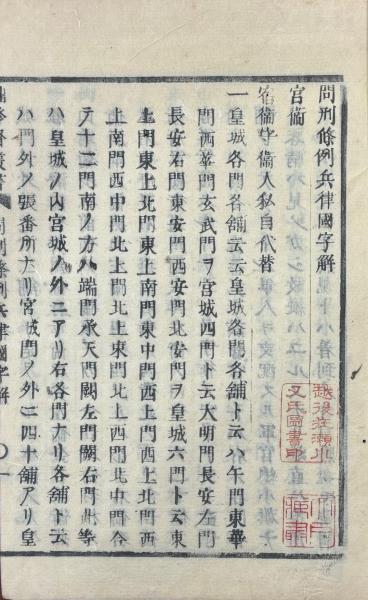 問刑條例兵律國字解
官衞
宿衞守衞人私自代替
一皇城各門各舖云云皇城各門各舖ト云ハ午門東華
門西華門玄武門ヲ宮城四門ト云大明門長安左門
長安右門東安門西安門北安門ヲ皇城六門ト云東
上門東上北門東上南門東中門西上門西上北門西
上南門西中門北上門北上東門北上西門北中門合
テ十二門南ノ方ハ端門承天門闕左門闕右門此等
ハ皇城ノ内宮城ノ外ニアリ右各門ナリ各舖ト云
ハ門外ノ張番所ナリ宮城門ノ外ニ四十舖アリ皇
問刑條例兵律國字解
〇一